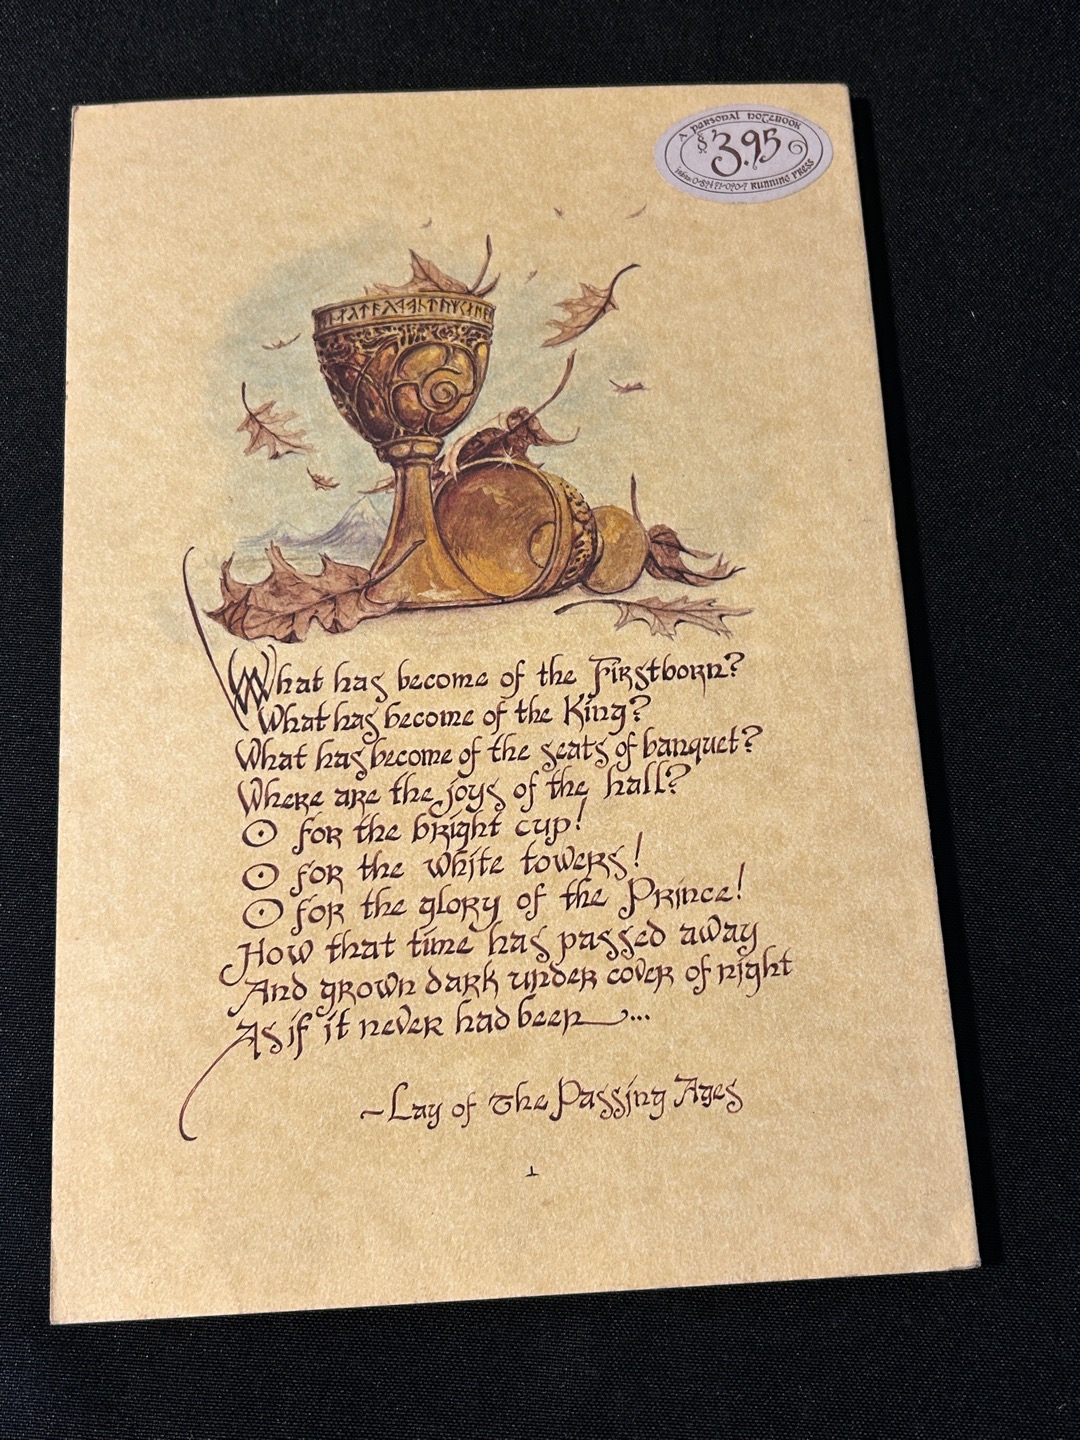 A PERSONAL NOTEBOOK
$3.95
RUNNING PRESS
What has become of the Firstborn?
What has become of the King?
What has become of the seats of banquet?
Where are the joys of the hall?
O for the bright cup!
O for the white towers!
O for the glory of the Prince!
How that time has passed away
And grown dark under cover of night
As if it never had been...
~Lay of The Passing Ages